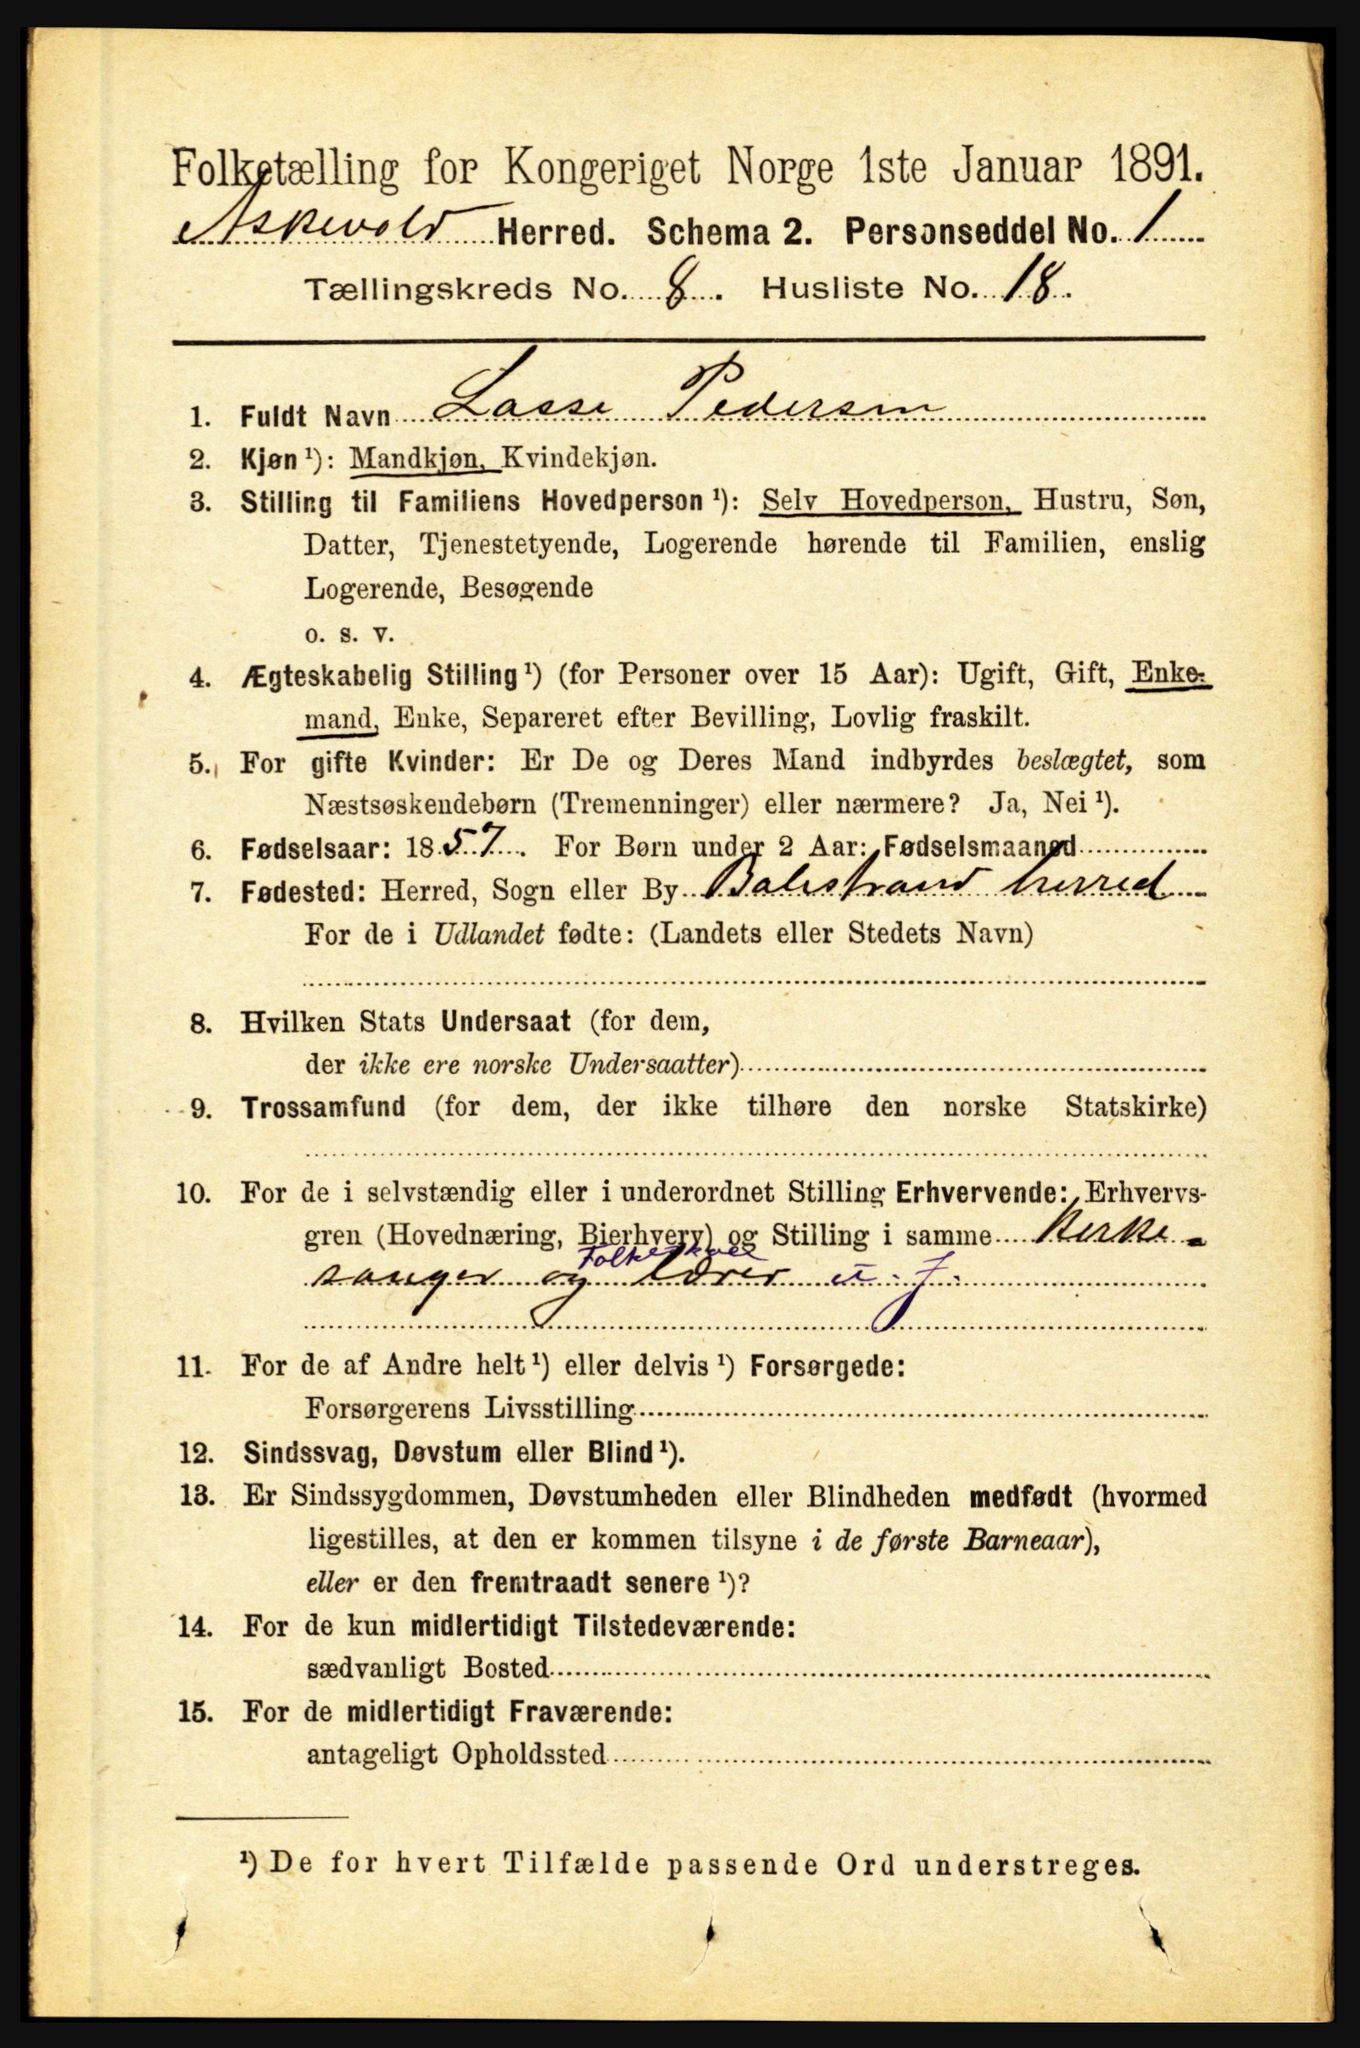 Folketælling for Kongeriget Norge 1ste Januar 1891.
Askevold Herred. Schema 2. Personseddel No. 1
Tællingskreds No. 8. Husliste No. 18.
1. Fuldt Navn Lasse Pedersen
2. Kjøn ¹): Mandkjøn, Kvindekjøn.
3. Stilling til Familiens Hovedperson ¹): Selv Hovedperson, Hustru, Søn,
Datter, Tjenestetyende, Logerende hørende til Familien, enslig
Logerende, Besøgende
o. s. v.
4. Ægteskabelig Stilling ¹) (for Personer over 15 Aar): Ugift, Gift, Enke-
mand, Enke, Separeret efter Bevilling, Lovlig fraskilt.
5. For gifte Kvinder: Er De og Deres Mand indbyrdes beslægtet, som
Næstsøskendebørn (Tremenninger) eller nærmere? Ja, Nei ¹).
6. Fødselsaar: 1857. For Børn under 2 Aar: Fødselsmaaned
7. Fødested: Herred, Sogn eller By Balestrand herred
For de i Udlandet fødte: (Landets eller Stedets Navn)
8. Hvilken Stats Undersaat (for dem,
der ikke ere norske Undersaatter)
9. Trossamfund (for dem, der ikke tilhøre den norske Statskirke)
10. For de i selvstændig eller i underordnet Stilling Erhvervende: Erhvervs-
gren (Hovednæring, Bierhverv) og Stilling i samme Kirke-
Folkeskole
sanger og lærer u. J.
11. For de af Andre helt ¹) eller delvis ¹) Forsørgede:
Forsørgerens Livsstilling
12. Sindssvag, Døvstum eller Blind ¹).
13. Er Sindssygdommen, Døvstumheden eller Blindheden medfødt (hvormed
ligestilles, at den er kommen tilsyne i de første Barneaar),
eller er den fremtraadt senere ¹)?
14. For de kun midlertidigt Tilstedeværende:
sædvanligt Bosted
15. For de midlertidigt Fraværende:
antageligt Opholdssted
¹) De for hvert Tilfælde passende Ord understreges.